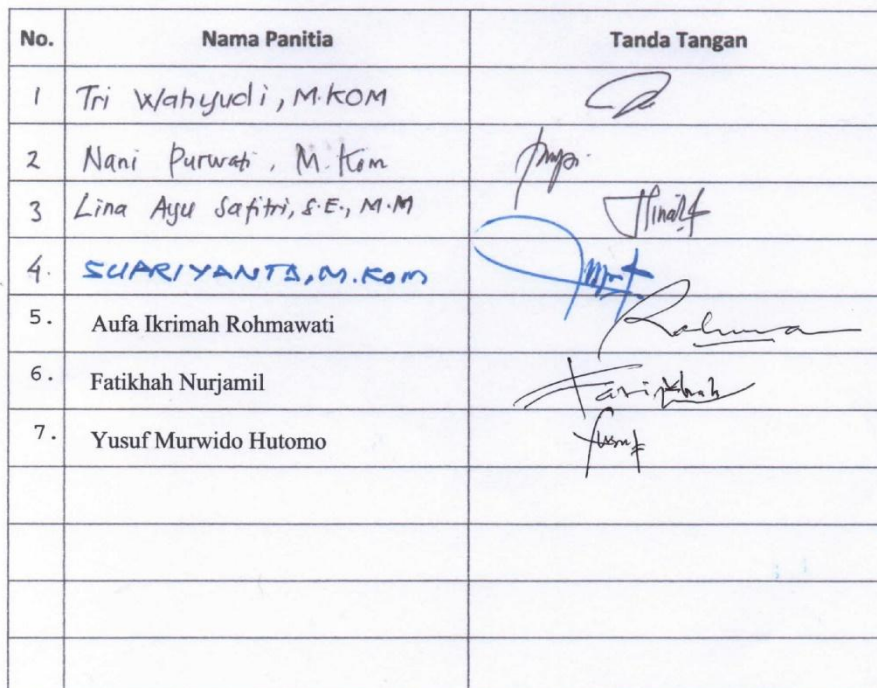 No. Nama Panitia Tanda Tangan
1 Tri Wahyudi, M.KOM
2 Nani Purwati, M.Kom
3 Lina Ayu Safitri, S.E., M.M
4. SUARIYANTO, M.Kom
5. Aufa Ikrimah Rohmawati
6. Fatikhah Nurjamil
7. Yusuf Murwido Hutomo